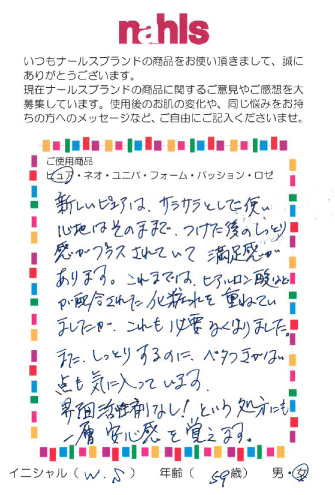 nahls
いつもナールスブランドの商品をお使い頂きまして、誠に
ありがとうございます。
現在ナールスブランドの商品に関するご意見やご感想を大
募集しています。使用後のお肌の変化や、同じ悩みをお持
ちの方へのメッセージなど、ご自由にご記入くださいませ。
ご使用商品
ピュア・ネオ・ユニバ・フォーム・パッション・ロゼ
新しいピュアは、サラサラとした使い
心地はそのままで、つけた後のしっとり
感がプラスされていて 満足感が
あります。これまでは、ヒアルロン酸など
が配合された化粧水も重ねてい
ましたが、これも必要なくなりました。
また、しっとりするのに、ベタつきがない
点も気に入っています。
界面活性剤なし!という処方にも
一層安心感を覚えます。
イニシャル(W.S) 年齢(59歳) 男・女